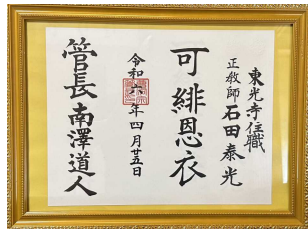 東光寺住職
正教師 石田泰光
可緋恩衣
令和六年四月廿五日
管長 南澤道人